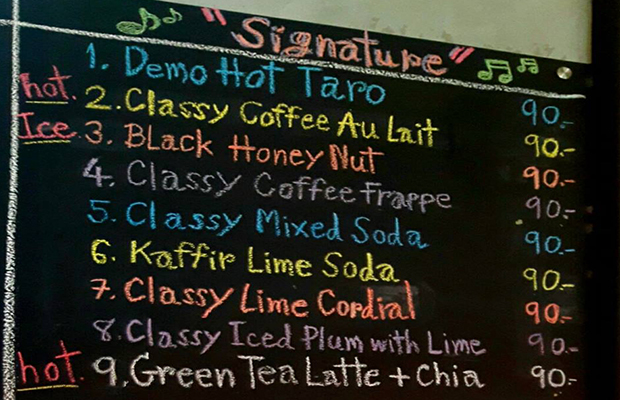 "Signature"
1. Demo Hot Taro 90.-
hot. 2. Classy Coffee Au Lait 90.-
Ice 3. BLack Honey Nut 90.-
4. Classy Coffee Frappe 90.-
5. Classy Mixed Soda 90.-
6. Kaffir Lime Soda 90.-
7. Classy Lime Cordial 90.-
8. Classy Iced Plum with Lime 90.-
hot. 9. Green Tea Latte + Chia 90.-